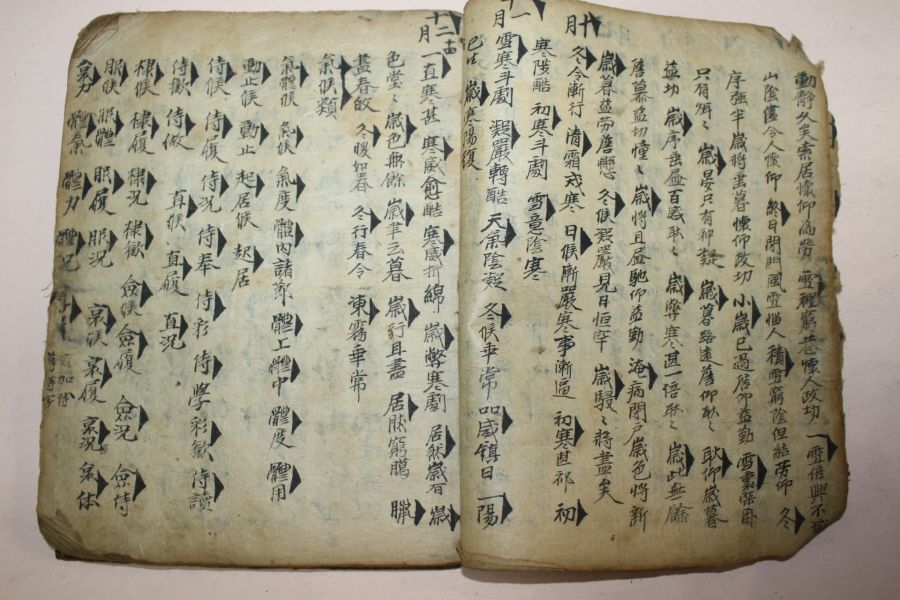 動靜久矣索居懷仰尙勞 雪裡窮巷懷人政切 一雪倍興不
山陰儘令人懷仰 終日閉門風雪惱人 積雪窮陰但結勞仰 冬
序强半 歲將暮懷仰政切 小歲已過舊仰益勤 雪裏深卧
只有炯炯 歲晏只有神 歲暮路遠舊仰耿耿 耿仰歲暮
益切 歲序垂盡百感耿耿 歲弊寒甚一倍耿耿 歲此無
舊慕益切憧憧 歲將且盡馳仰益勤 淹病閉戶歲色將新
歲暮益勞舊戀 冬候凝嚴見日恒罕 歲駸駸將盡矣
十月 冬令漸行 清霜戒寒 日候漸嚴寒事漸逼 初寒甚祁 初
寒陡酷 初寒斗劇 雪意陰寒
十一月 雪寒斗劇 凝嚴轉酷 天氣陰凝 冬候乖常 一陽
已生 歲寒陽復
十二月 一直寒甚 寒威愈酷 寒威折綿 歲弊寒劇 居然歲 歲
色 歲色無餘 歲聿云暮 歲行且盡 居然窮臘 臘
盡春 冬暖如春 冬行春令 東霧乖常
氣候類
氣體候 氣候 氣度 體內諸節 體上 體中 體度 體用
動止候 動止 起居候 起居
侍候 侍履 侍況 侍奉 侍彩 侍學 彩歡 侍讀
侍歡 侍做 直候 直履 直況
棣候 棣履 棣況 棣歡 僉候 僉履 僉況 僉侍
服候 服體 服履 服況 哀候 哀履 哀況 哀体
哀力 體氣 體力 體況